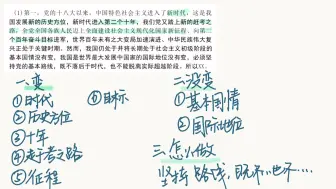 (1)第一，党的十八大以来，中国特色社会主义进入了新时代，这是我
国发展新的历史方位，新时代进入第二个十年，我们党又踏上新的赶考之
路，全党全国各族人民迈上全面建设社会主义现代化国家新征程、向第二
个百年奋斗目标进军，世界百年未有之大变局加速演进、中华民族伟大复
兴正处于关键时期。然而，我国仍处于并将长期处于社会主义初级阶段的
基本国情没有变，我国是世界最大发展中国家的国际地位没有变，必须坚
持党的基本路线，既不落后于时代，也不能脱离实际超越阶段。所以
一、变
①时代
②历史方位
③十年
④赶考之路
⑤征程
⑥目标
二、没变
①基本国情
②国际地位
三、怎么做
坚持 路线，既不 也不……